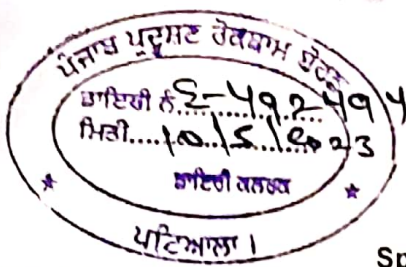 ਪੰਜਾਬ ਪ੍ਰਦੂਸ਼ਣ ਰੋਕਥਾਮ ਬੋਰਡ
ਡਾਇਰੀ ਨੰ.
ਮਿਤੀ.....10/5/2023
ਡਾਇਰੀ ਕਲਰਕ
ਪਟਿਆਲਾ ।
Sp